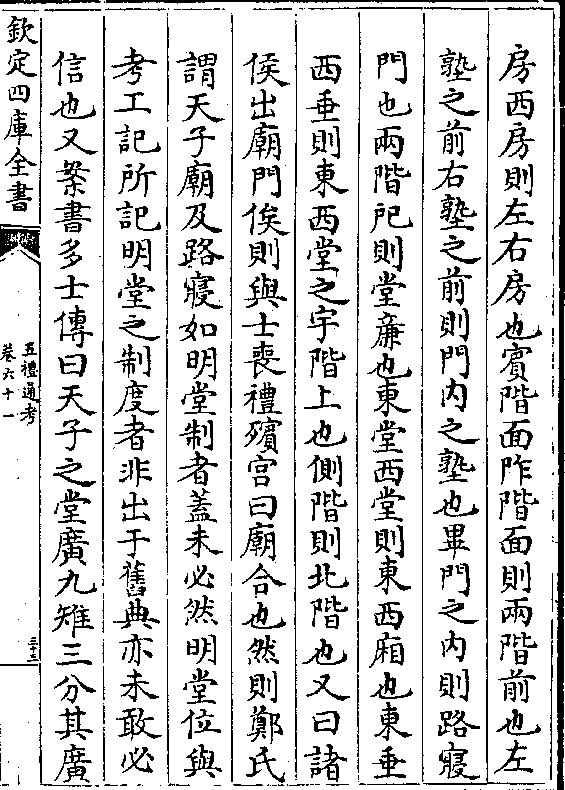 房西房則左右房也賓階面阼階面則兩階前也左
塾之前右塾之前則門内之塾也畢門之内則路寢
門也兩階戺則堂亷也東堂西堂則東西廂也東垂
西垂則東西堂之宇階上也側階則北階也又曰諸
侯出廟門俟則與士喪禮殯宫曰廟合也然則鄭氏
謂天子廟及路寢如明堂制者蓋未必然明堂位與
考工記所記明堂之制度者非出于舊典亦未敢必
信也又案書多士傳曰天子之堂廣九雉三分其廣
欽定四庫全書
五禮通考
卷六十一
三十三